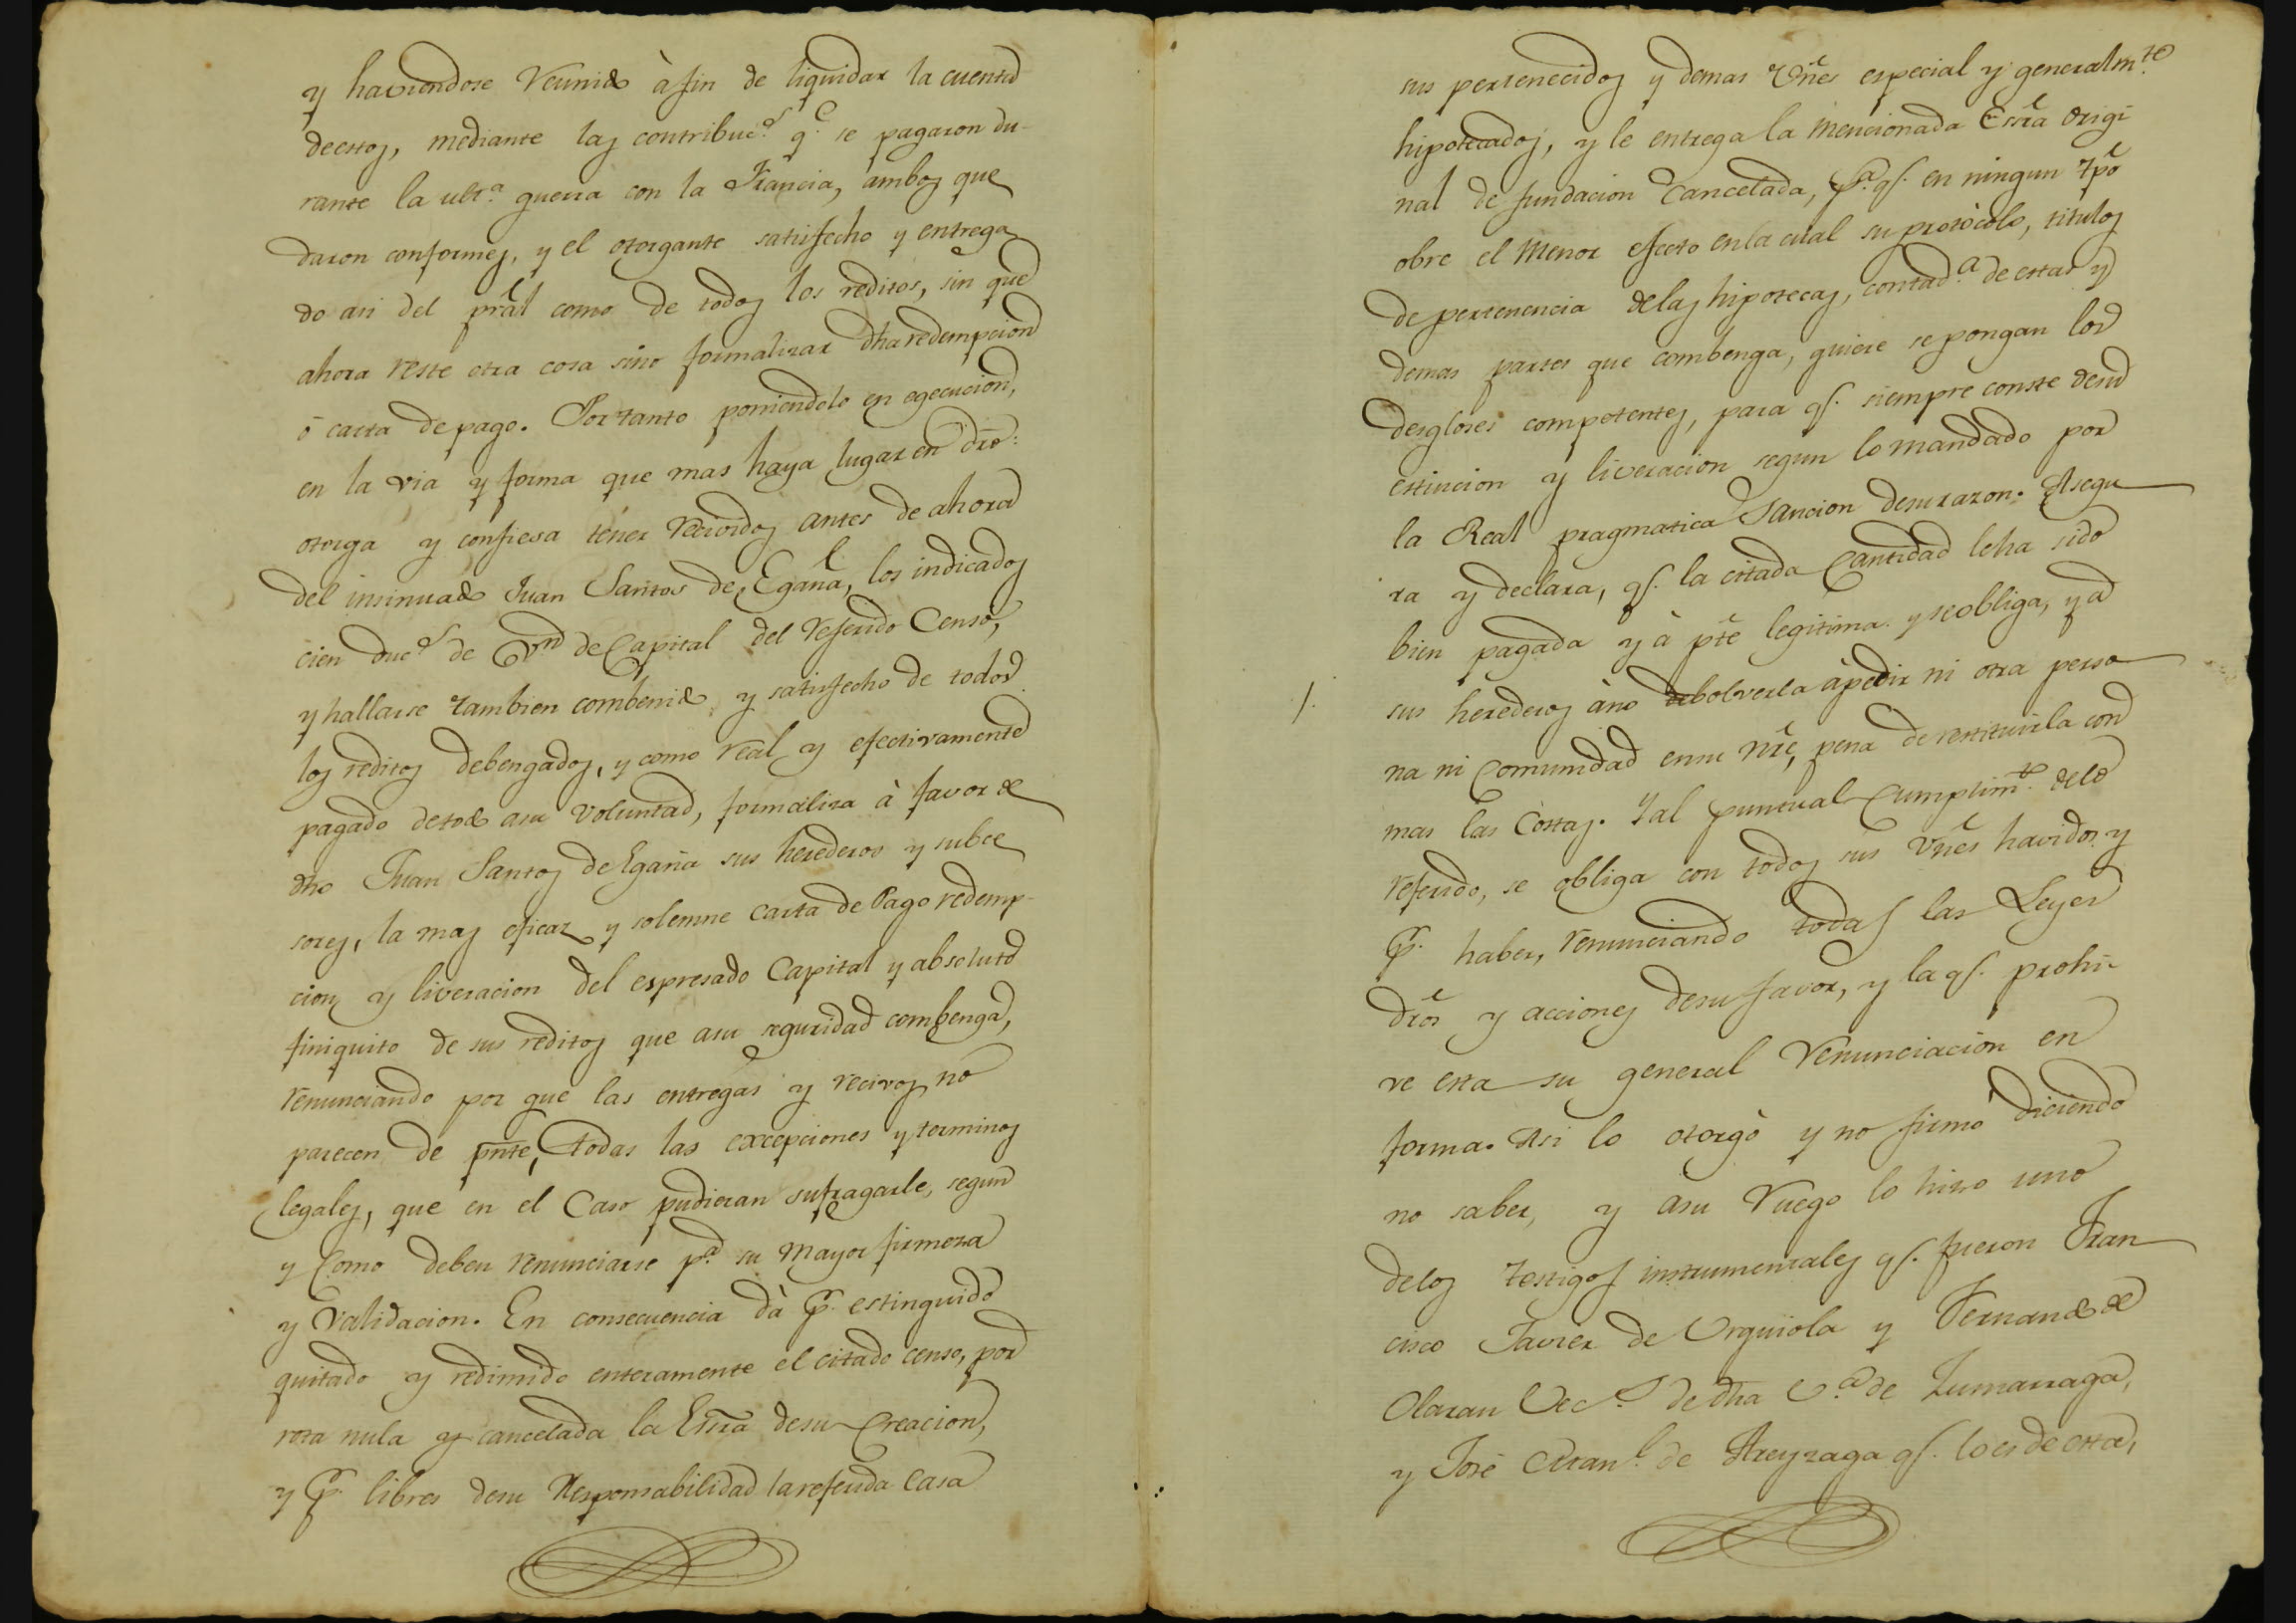 y haviendose reunido à fin de liquidar la cuenta
deestos, mediante las contribuc.s q.e se pagaron du-
rante la ult.a guerra con la Francia, ambos que
daron conformes, y el otorgante satisfecho y entrega
do asi del pral como de todos los reditos, sin que
ahora reste otra cosa sino formalizar dha redempcion
ó carta de pago. Por tanto poniendolo en egecucion,
en la via y forma que mas haya lugar en dro:
otorga y confiesa tener recividos antes de ahora
del insinuado Juan Santos de Egaña, los indicados
cien duc.s de vn de Capital del referido Censo,
y hallarse tambien combenido y satisfecho de todos
los reditos debengados, y como real y efectivamente
pagado detodo asu voluntad, formaliza à favor de
dho Juan Santos de Egaña sus herederos y subce
sores, la mas eficaz y solemne carta de Pago redemp-
cion y liveracion del espresado Capital y absoluto
finiquito de sus reditos que asu seguridad combenga,
renunciando por que las entregas y recivos no
parecen de pnte, todas las excepciones y terminos
legales, que en el Caso pudieran sufragarle, segun
y Como deben renunciarse p.a su mayor firmeza
y Validacion. En consecuencia dà p.r estinguido
quitado y redimido enteramente el citado censo, por
rota nula y cancelada la Essra desu Creacion,
y p.r libres desu Responsabilidad la referida Casa
sus pertenecidos y demas vnes especial y generalm.te
hipotecados, y le entrega la mencionada Essra origi
nal de fundacion Cancelada, p.a q.e en ningun tpo
obre el menor efecto en la cual su protòcolo, titulos
de pertenencia delas hipotecas, contad.a de estas y
demas partes que combenga, quiere se pongan los
desgloses competentes, para q.e siempre conste desu
estincion y liveracion segun lo mandado por
la Real pragmatica Sancion desu razon. Asegu
ra y declara, q.e la citada Cantidad leha sido
bien pagada y à pte legitima y se obliga, y a
sus herederos àno debolverla àpedir ni otra perso
na ni Comunidad ensu nre, pena de restituirla con
mas las Còstas. Y al puntual Cumplim.to delo
referido, se obliga con todos sus vnes havidos y
p.r haber, renunciando todas las Leyes
dros y acciones desu favor, y la q.e prohi-
ve esta su general renunciacion en
forma. Asi lo otorgò y no firmò diciendo
no saber, y asu ruego lo hizo uno
delos testigos instrumentales q.e fueron Fran
cisco Javier de Urquiola y Fernando de
Olaran Vec.s de dha V.a de Zumarraga,
y José de Areyzaga q.e lo es de esta,